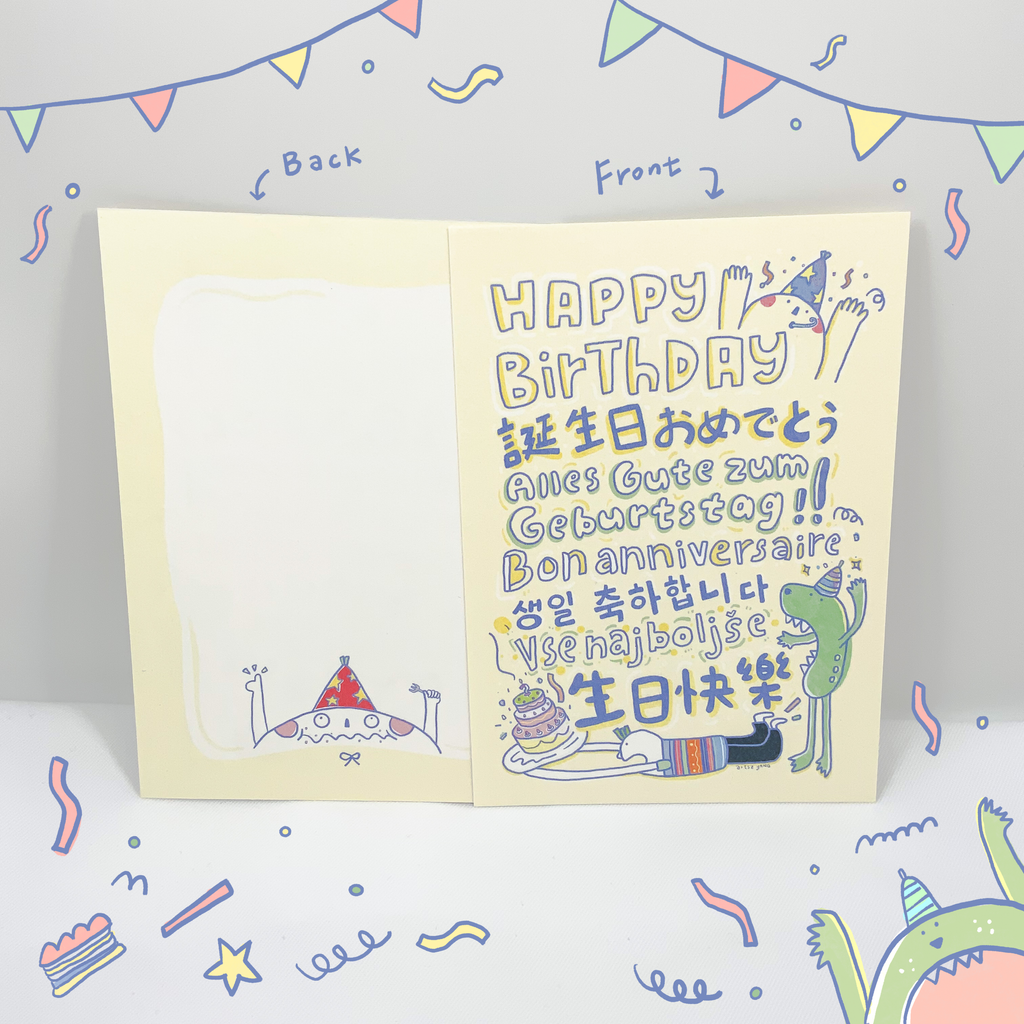 Back
Front
HAPPY
BirThDAY
誕生日おめでとう
Alles Gute zum
Geburtstag!!
Bon anniversaire
생일 축하합니다
Vse najboljše
生日快樂